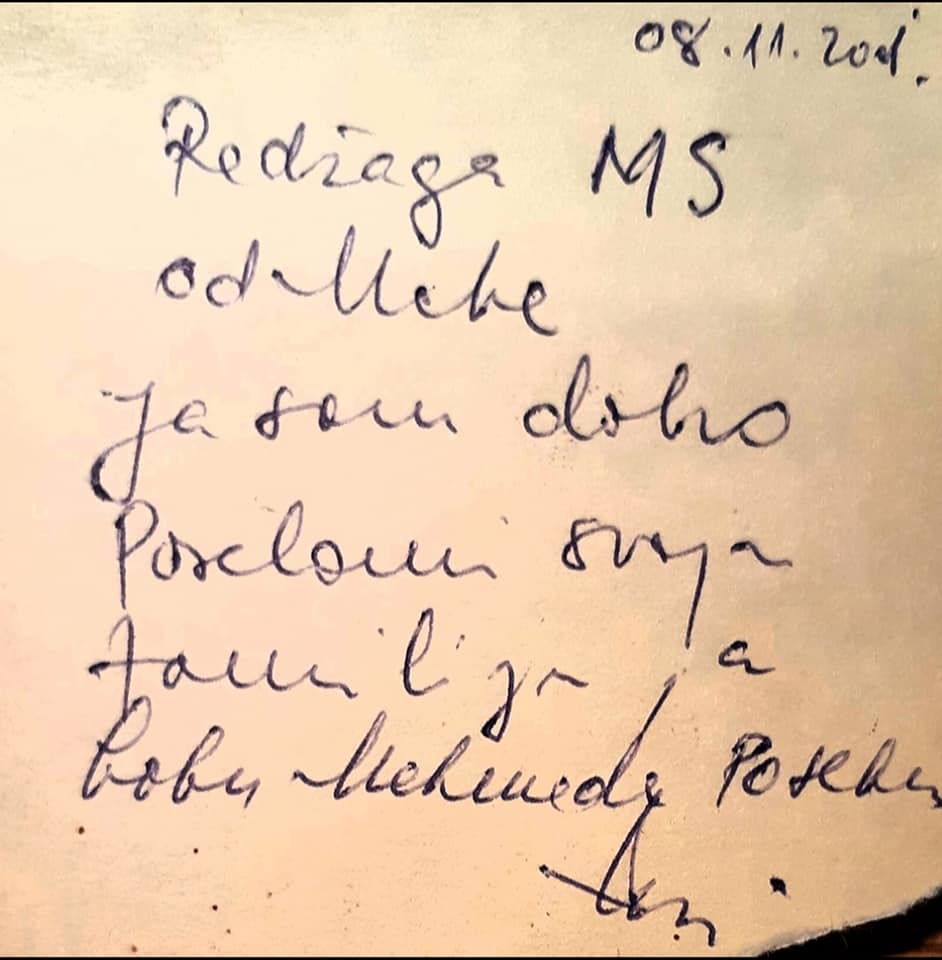 08.11.2001.
Redžaga MS
od Mehe
Ja sam dobro
Poselami svoju
familiju, a
babu Mehmeda Poseb